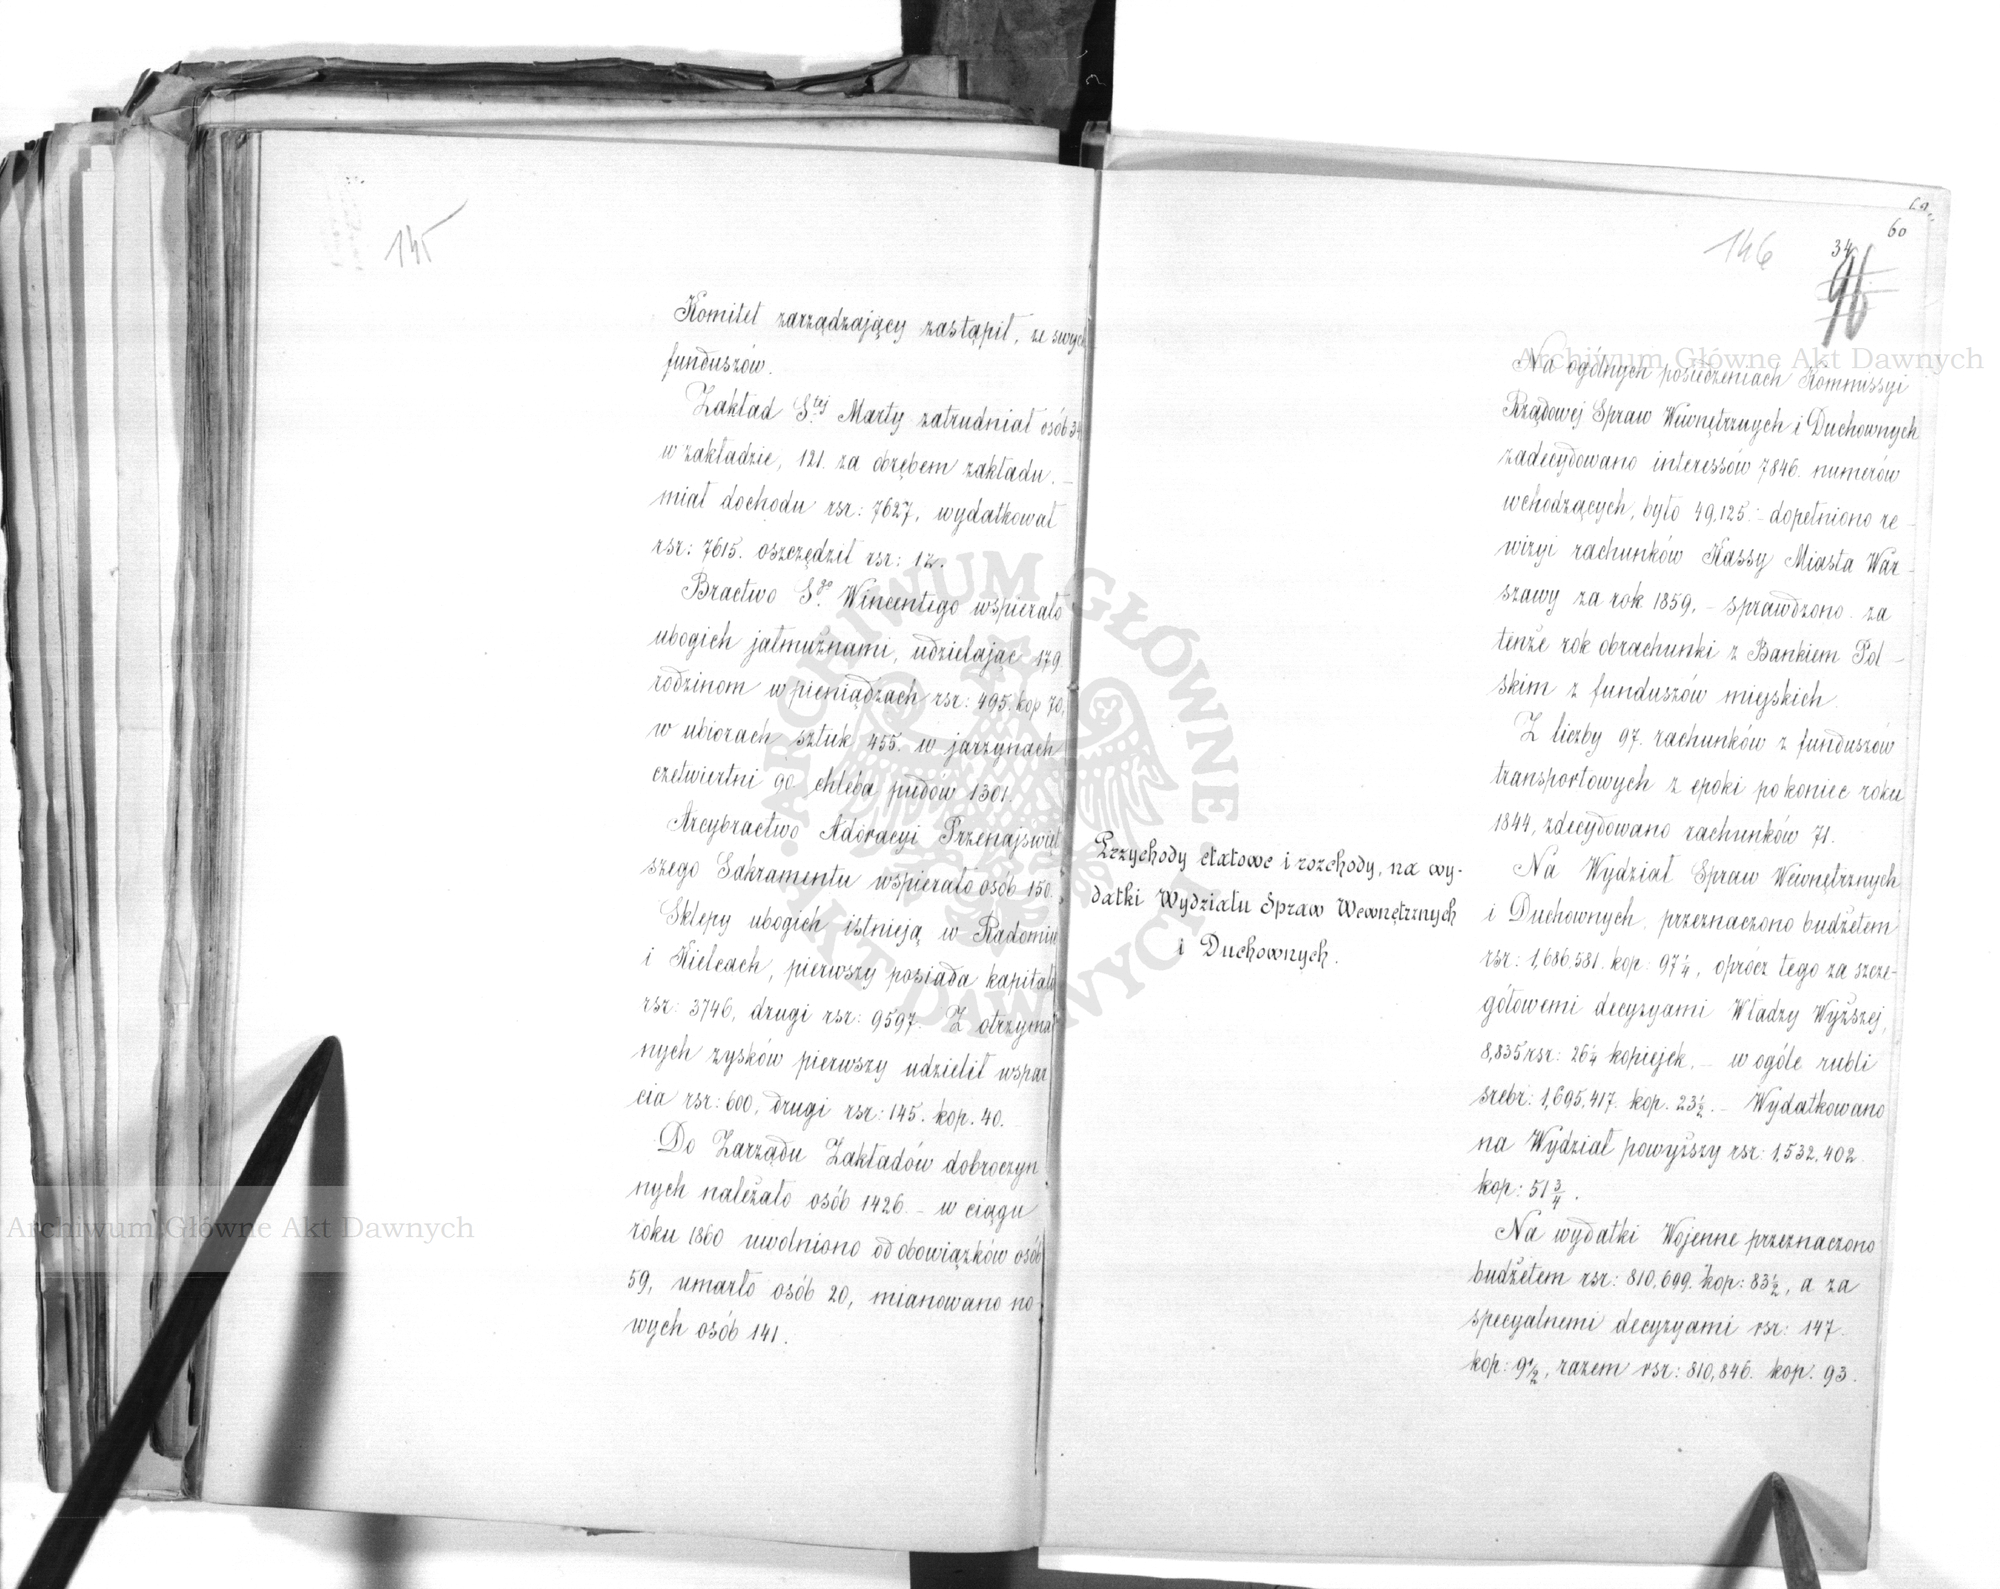 145
Komitet zarządzający zastąpił, ze swych
funduszów.
Zakład S.tej Marty zatrudniał osób 34
w zakładzie, 121. za obrębem zakładu. –
miał dochodu rsr: 7627, wydatkował
rsr: 7615. oszczędził rsr: 12.
Bractwo S.go Wincentego wspierało
ubogich jałmużnami, udzielając 179
rodzinom w pieniądzach rsr: 495. kop 70,
w ubiorach sztuk 455. w jarzynach
czetwiertni 90 chleba pudów 1301.
Arcybractwo Adoracyi Przenajświęt
szego Sakramentu wspierało osób 150.
Sklepy ubogich istnieją w Radomiu
i Kielcach, pierwszy posiada kapitału
rsr: 3746, drugi rsr: 9597. Z otrzyma
nych zysków pierwszy udzielił wspar
cia rsr: 600, drugi rsr: 145. kop. 40.
Do Zarządu Zakładów dobroczyn
nych należało osób 1426. – w ciągu
roku 1860 uwolniono od obowiązków osób
59, umarło osób 20, mianowano no-
wych osób 141.
60
146
34
96
Na ogólnych posiedzeniach Kommissyi
Rządowej Spraw Wewnętrznych i Duchownych
zadecydowano interessów 7846. numerów
wchodzących, było 49,125. – dopełniono re-
wizyi rachunków Kassy Miasta War-
szawy za rok 1859, – sprawdzono za
tenże rok obrachunki z Bankiem Pol-
skim z funduszów miejskich.
Z liczby 97. rachunków z funduszów
transportowych z epoki po koniec roku
1844, zdecydowano rachunków 71.
Przychody etatowe i rozchody, na wy-
datki Wydziału Spraw Wewnętrznych
i Duchownych.
Na Wydział Spraw Wewnętrznych
i Duchownych przeznaczono budżetem
rsr: 1,686,581. kop: 97¼, oprócz tego za szcze-
gółowemi decyzyami Władzy Wyższej,
8,835 rsr: 26¼ kopiejek, – w ogóle rubli
srebr: 1,695,417. kop. 23½. – Wydatkowano
na Wydział powyższy rsr: 1,532,402
kop: 51¾.
Na wydatki Wojenne przeznaczono
budżetem rsr: 810,699. kop: 83½, a za
specyalnemi decyzyami rsr: 147.
kop: 9½, razem rsr: 810,846. kop. 93.
Archiwum Główne Akt Dawnych
Archiwum Główne Akt Dawnych
ARCHIWUM GŁÓWNE AKT DAWNYCH